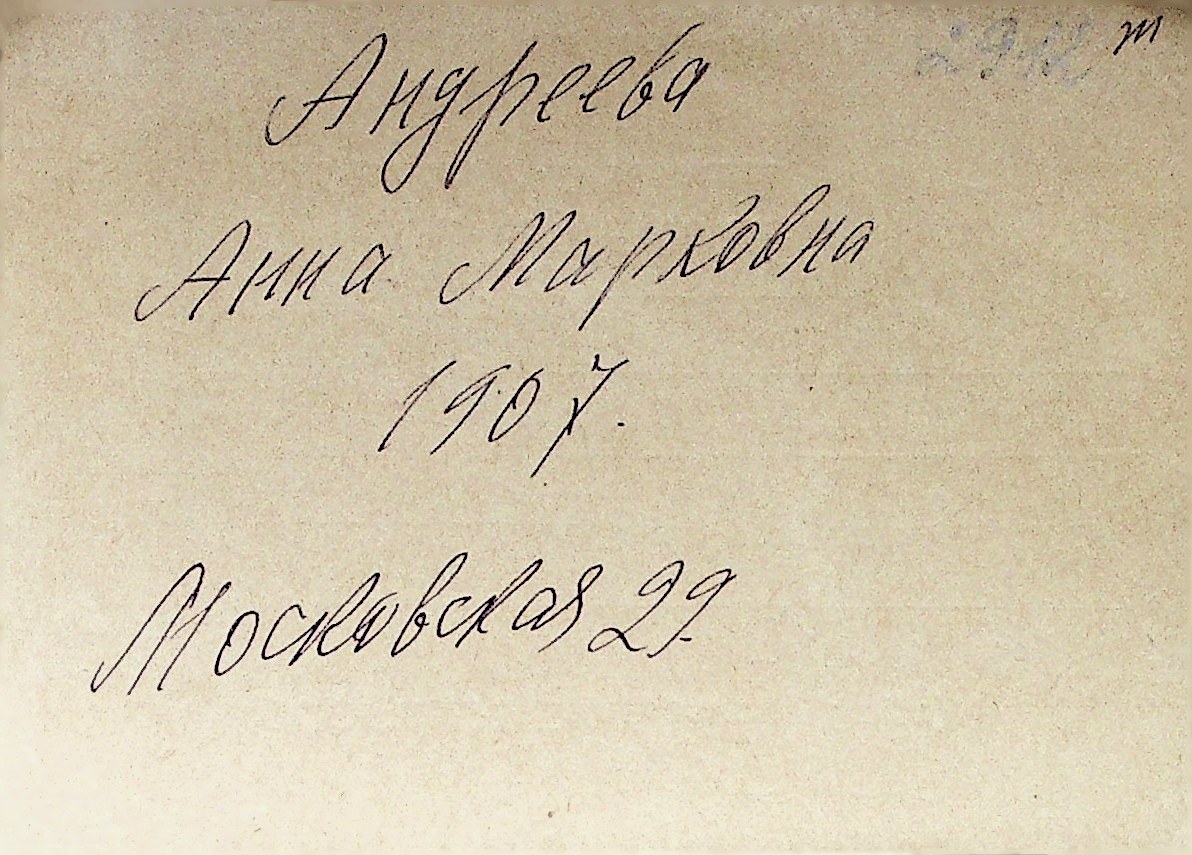 Андреева
Анна Марковна
1907.
Московская 29.